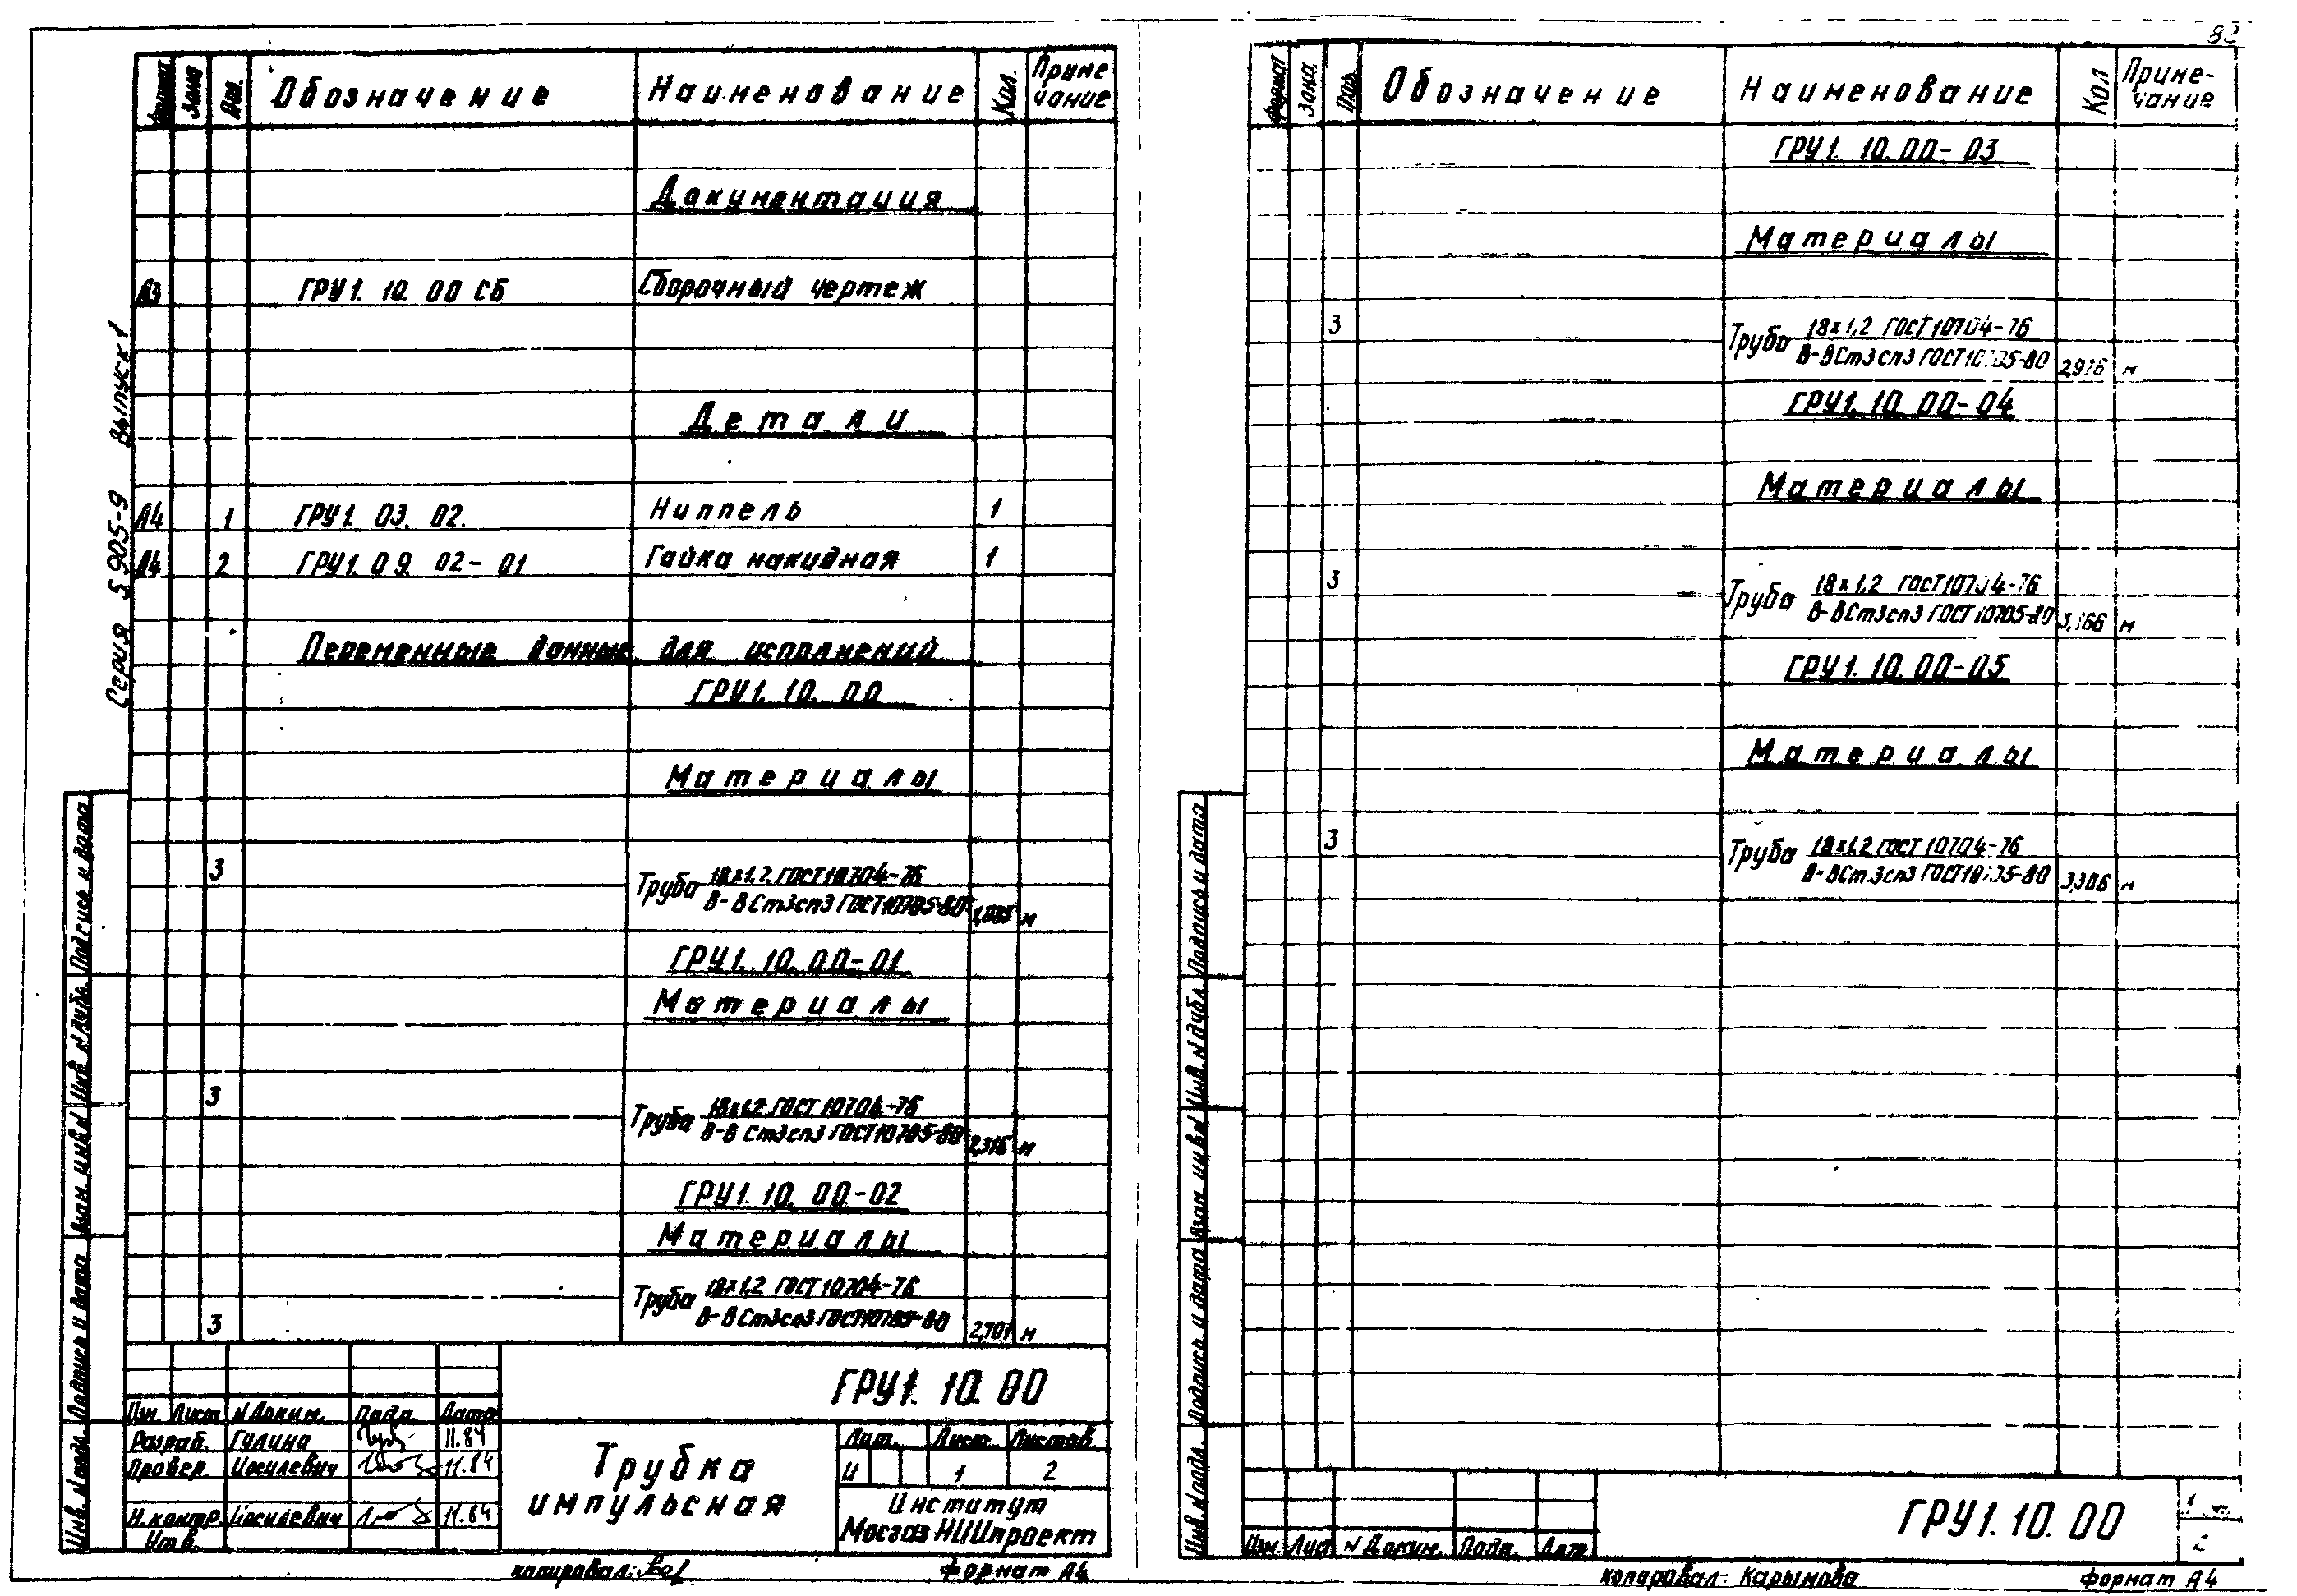 82
Серия 5.905-9 Выпуск 1
Формат Зона Поз. Обозначение Наименование Кол. Приме-чание
Документация
А3 ГРУ1. 10. 00 СБ Сборочный чертеж
Детали
А4 1 ГРУ1. 03. 02. Ниппель 1
А4 2 ГРУ1. 09. 02-01 Гайка накидная 1
Переменные данные для исполнений
ГРУ1. 10. 00
Материалы
3 Труба 18х1.2 ГОСТ 10704-76
В-ВСт3сп3 ГОСТ 10705-80 м
ГРУ1. 10. 00-01
Материалы
3 Труба 18х1.2 ГОСТ 10704-76
В-В Ст3сп3 ГОСТ 10705-80 2,316 м
ГРУ1. 10. 00-02
Материалы
Труба 18х1.2 ГОСТ 10704-76
3 В-ВСт3сп3 ГОСТ 10705-80 2,701 м
Подпись и дата
Инв. № дубл.
Взам. инв. №
Подпись и дата
Инв. № подл.
ГРУ1. 10. 00
Изм. Лист № Докум. Подп. Дата
Разраб. Гулина 11.84
Провер. Иосилевич 11.84
Н. контр. Иосилевич 11.84
Утв.
Трубка
импульсная
Лит. Лист Листов
И 1 2
Институт
МосгазНИИпроект
копировал:
формат А4
Формат Зона. Поз. Обозначение Наименование Кол Приме-чание
ГРУ1. 10. 00-03
Материалы
3 Труба 18х1.2 ГОСТ 10704-76
В-ВСт3сп3 ГОСТ 10705-80 2,976 м
ГРУ1. 10. 00-04
Материалы
3 Труба 18х1.2 ГОСТ 10704-76
В-ВСт3сп3 ГОСТ 10705-80 3,166 м
ГРУ1. 10. 00-05
Материалы
3 Труба 18х1.2 ГОСТ 10704-76
В-ВСт.3сп3 ГОСТ 10705-80 3,306 м
Подпись и дата
Инв. № дубл.
Взам инв №
Подпись и дата
Инв. № подл.
Изм. Лист № Докум. Подп. Дата
ГРУ1. 10. 00
2
копировал: Карымова
формат А4